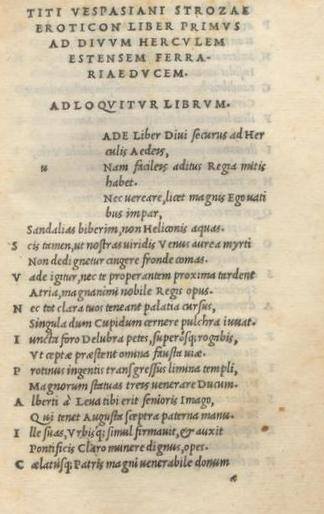 TITI VESPASIANI STROZAE
EROTICON LIBER PRIMVS
AD DIVVM HERCVLEM
ESTENSEM FERRA-
RIAE DVCEM.
ADLOQVITVR LIBRVM.
u ADE Liber Diui securus ad Her
culis Aedeis,
Nam facileis aditus Regia mitis
habet.
Nec uereare, licet magnis Ego uati
bus impar,
Sandalias biberim, non Heliconis aquas.
S cis tamen, ut nostras uiridis Venus aurea myrti
Non dedignetur cingere fronde comas.
V ade igitur, nec te properantem proxima tardent
Atria, magnanimi nobile Regis opus.
N ec tot clara tuos teneant palatia cursus,
Singula dum Cupidum cernere pulchra iuuat.
I uncta foro Delubra petes, superosq; rogabis,
Vt cœptæ præstent omina fausta uiæ.
P rotinus ingentis transgressus limina templi,
Magnorum statuas treis uenerare Ducum.
A lberti à Leua tibi erit senioris Imago,
Qui tenet Augusta sceptra paterna manu.
I lle suas, Vrbisq; simul firmauit, & auxit
Pontificis Claro munere dignus, opes.
C ælatúsq; Patris magni uenerabile donum